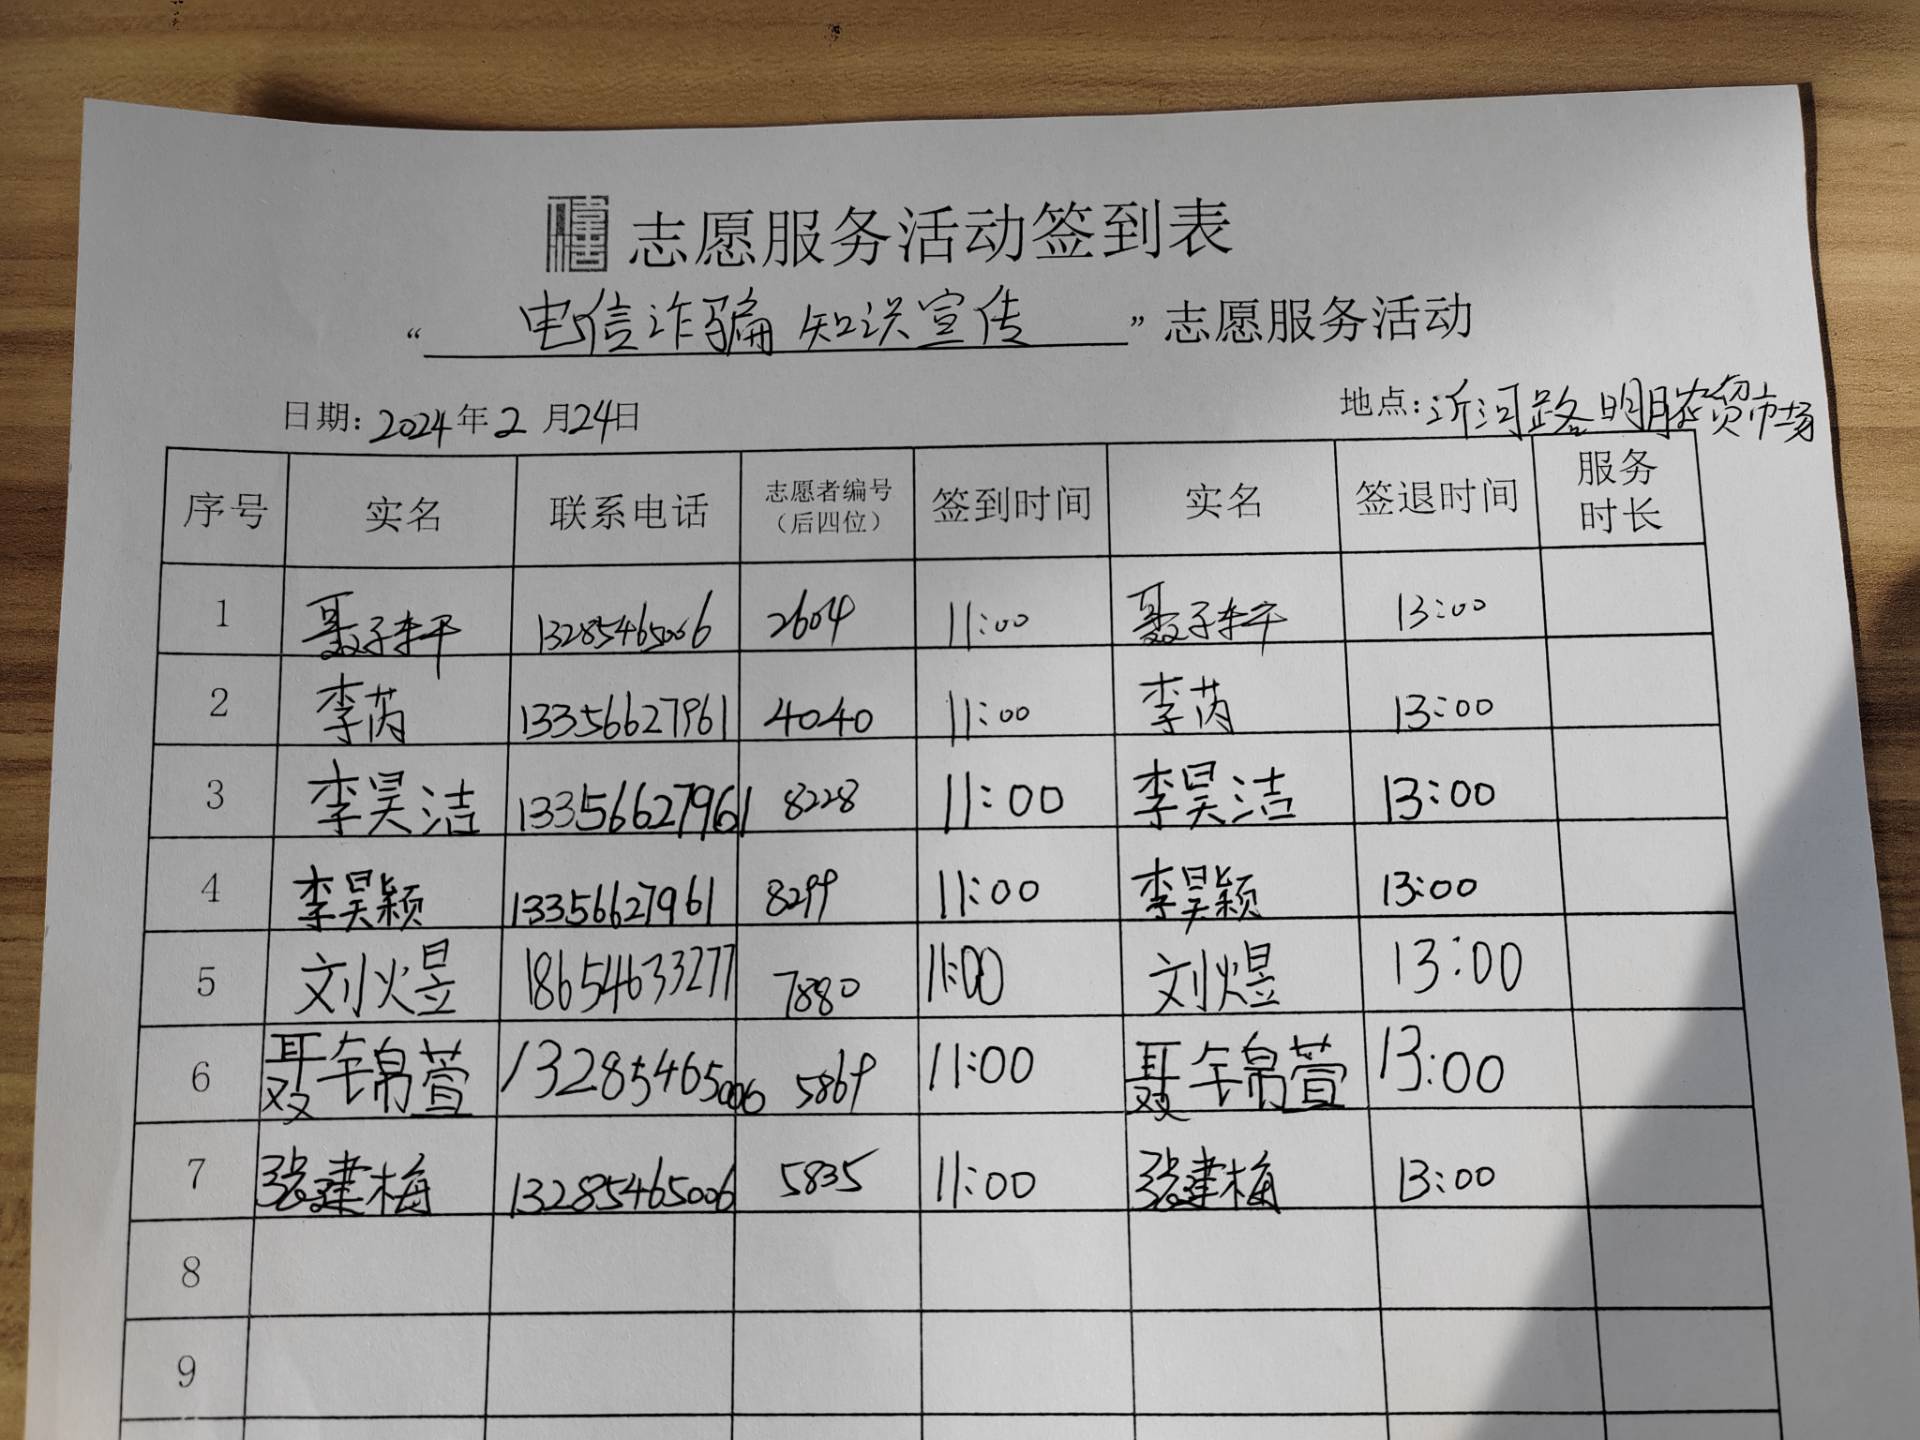 志愿服务活动签到表
“电信诈骗知识宣传”志愿服务活动
日期: 2024年2月24日 地点: 沂河路明月农贸市场
序号 实名 联系电话 志愿者编号（后四位） 签到时间 实名 签退时间 服务时长
1 聂子轩 13285465006 2604 11:00 聂子轩 13:00
2 李芮 13356627961 4040 11:00 李芮 13:00
3 李昊洁 13356627961 8228 11:00 李昊洁 13:00
4 李昊颖 13356627961 8299 11:00 李昊颖 13:00
5 刘煜 18654633277 7880 11:00 刘煜 13:00
6 聂锦萱 13285465006 5869 11:00 聂锦萱 13:00
7 张建梅 13285465006 5835 11:00 张建梅 13:00
8
9